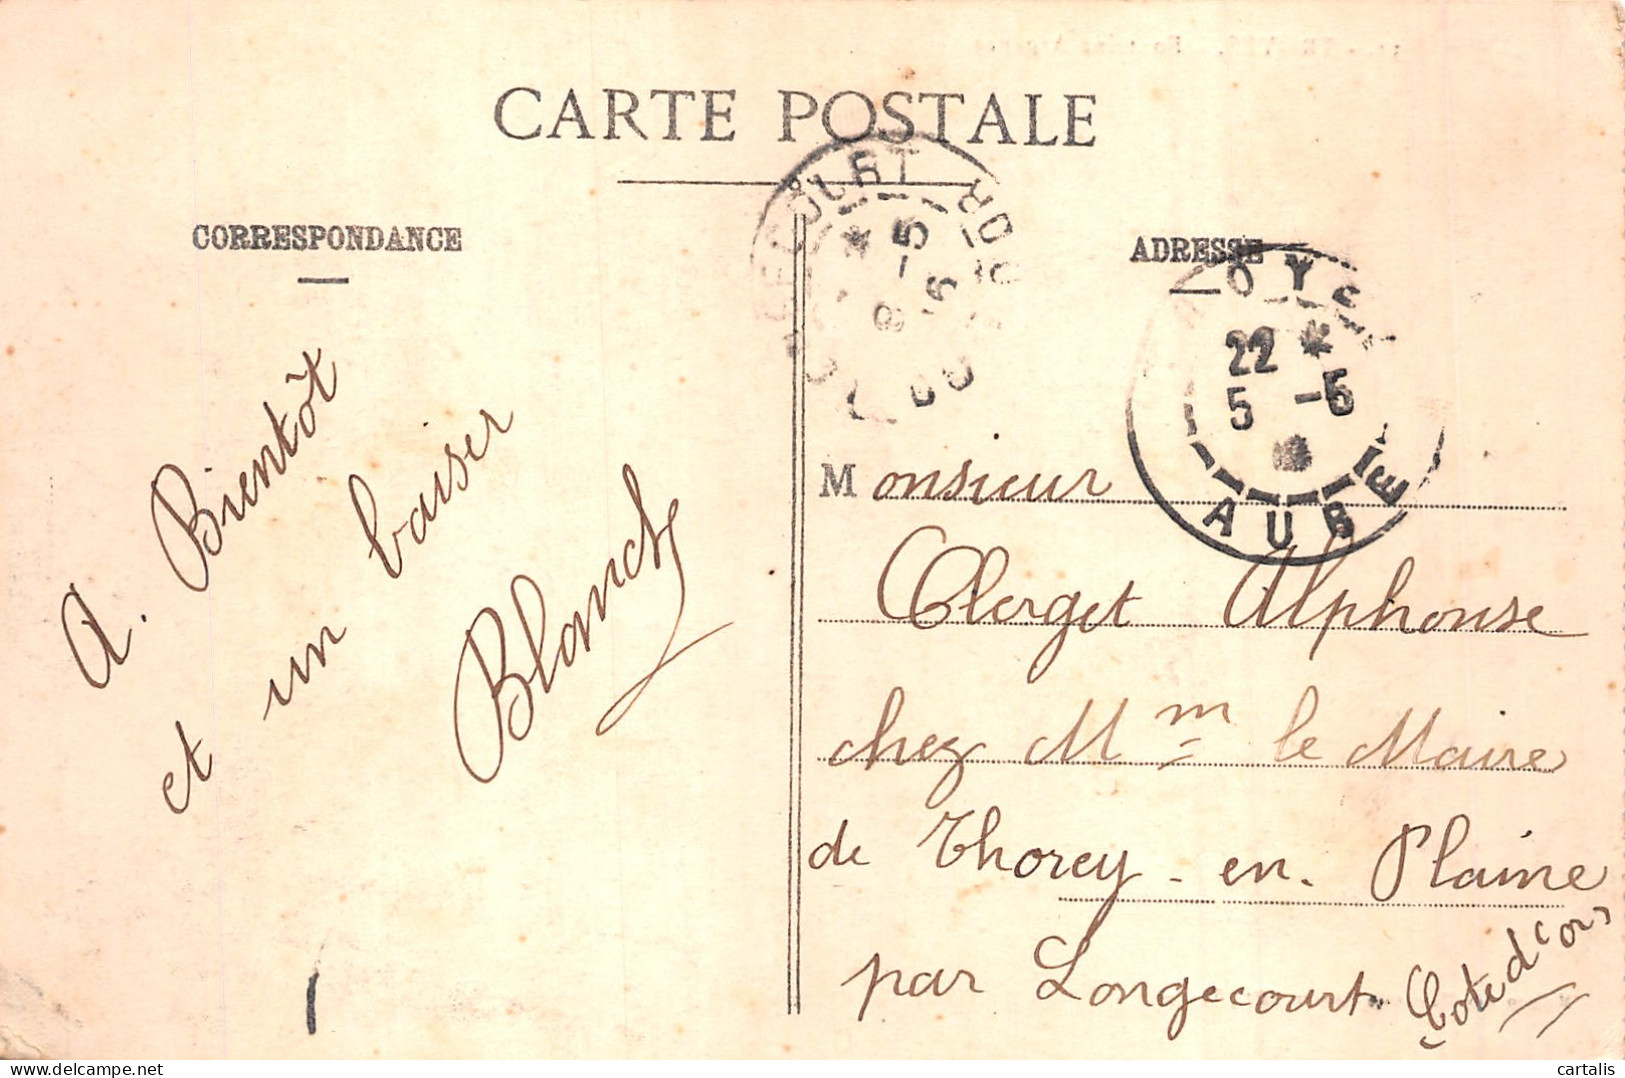 CARTE POSTALE
CORRESPONDANCE
ADRESSE
A. Bientôt
et un baiser
Blanche
Monsieur
Clerget Alphonse
chez Mme le Maire
de Thorey-en-Plaine
par Longecourt
(Cote d'or)
22 *
5 -5
AUBE
delcampe.net
cartalis